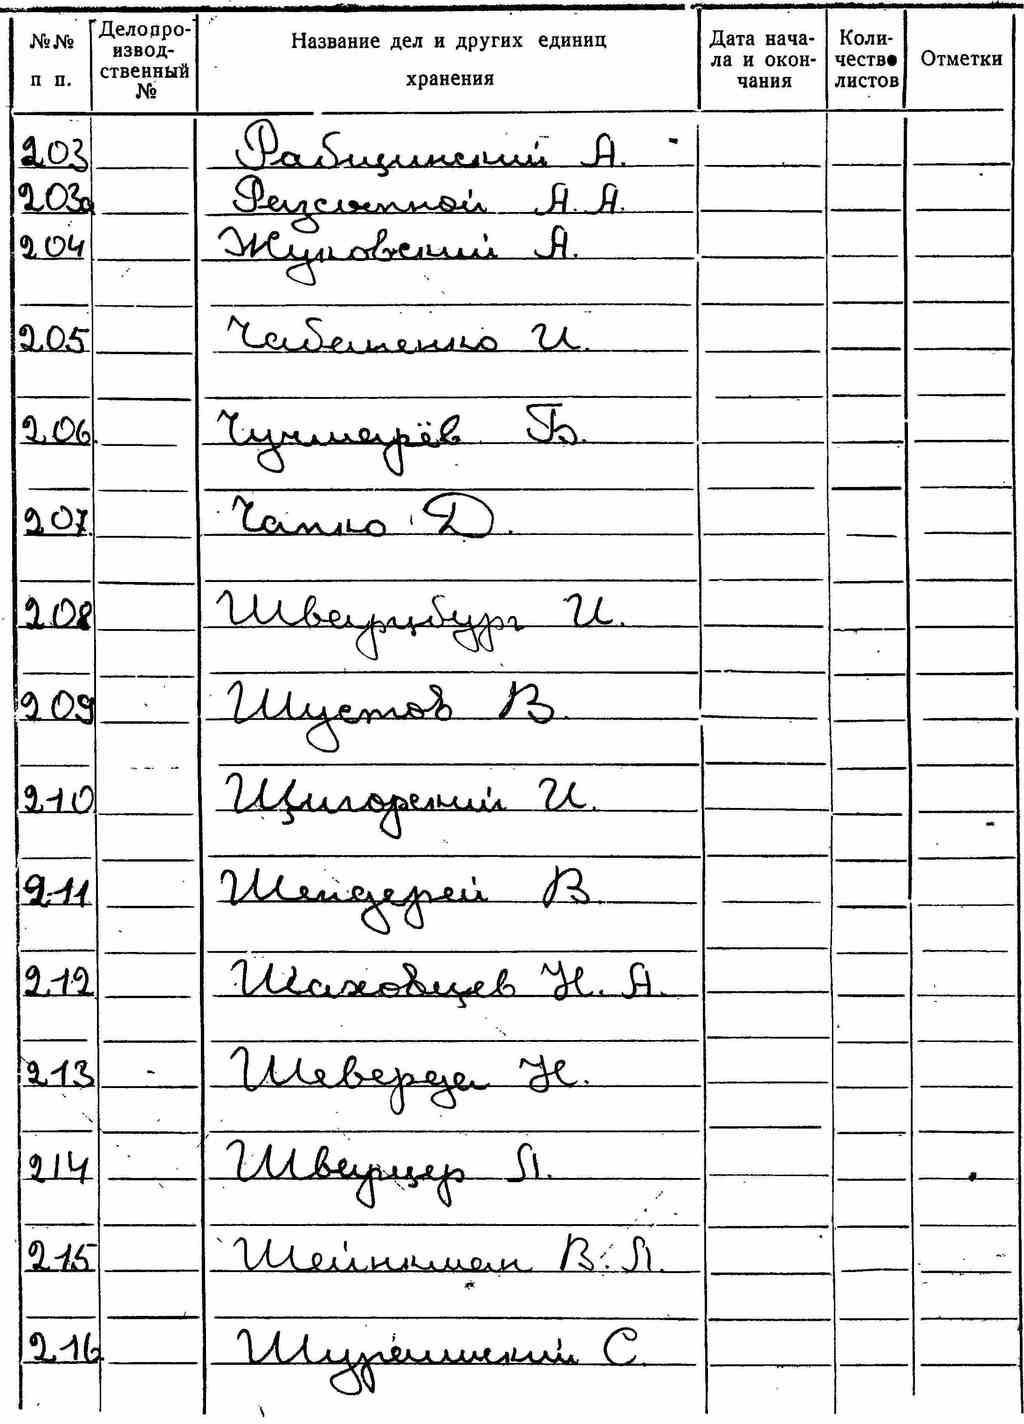 №№ п п.
Делопро-
извод-
ственный
№
Название дел и других единиц
хранения
Дата нача-
ла и окон-
чания
Коли-
чество
листов
Отметки
203 Рабщинский А.
203а А. А.
204 Жуковский А.
205 И.
206. Чучмарёв Б.
207. Чапко Д.
208 Шварцбург И.
209 Шустов В.
210 Щигорский И.
211 Шендерей В.
212 Шаховцев Н. А.
213 Шеверда Н.
214 Шварцер Л.
215 Шейнкман В. Л.
216 С.